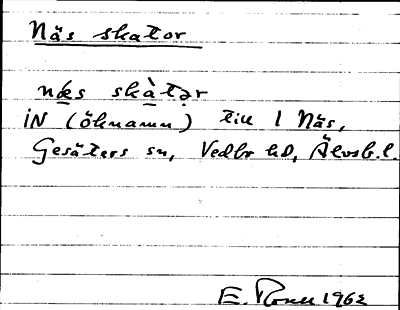 Näs skator
næ̣s skàtər
iN (öknamn) till 1 Näs,
Gesäters sn, Vedbo hd, Älvsb. l.
E. 1962